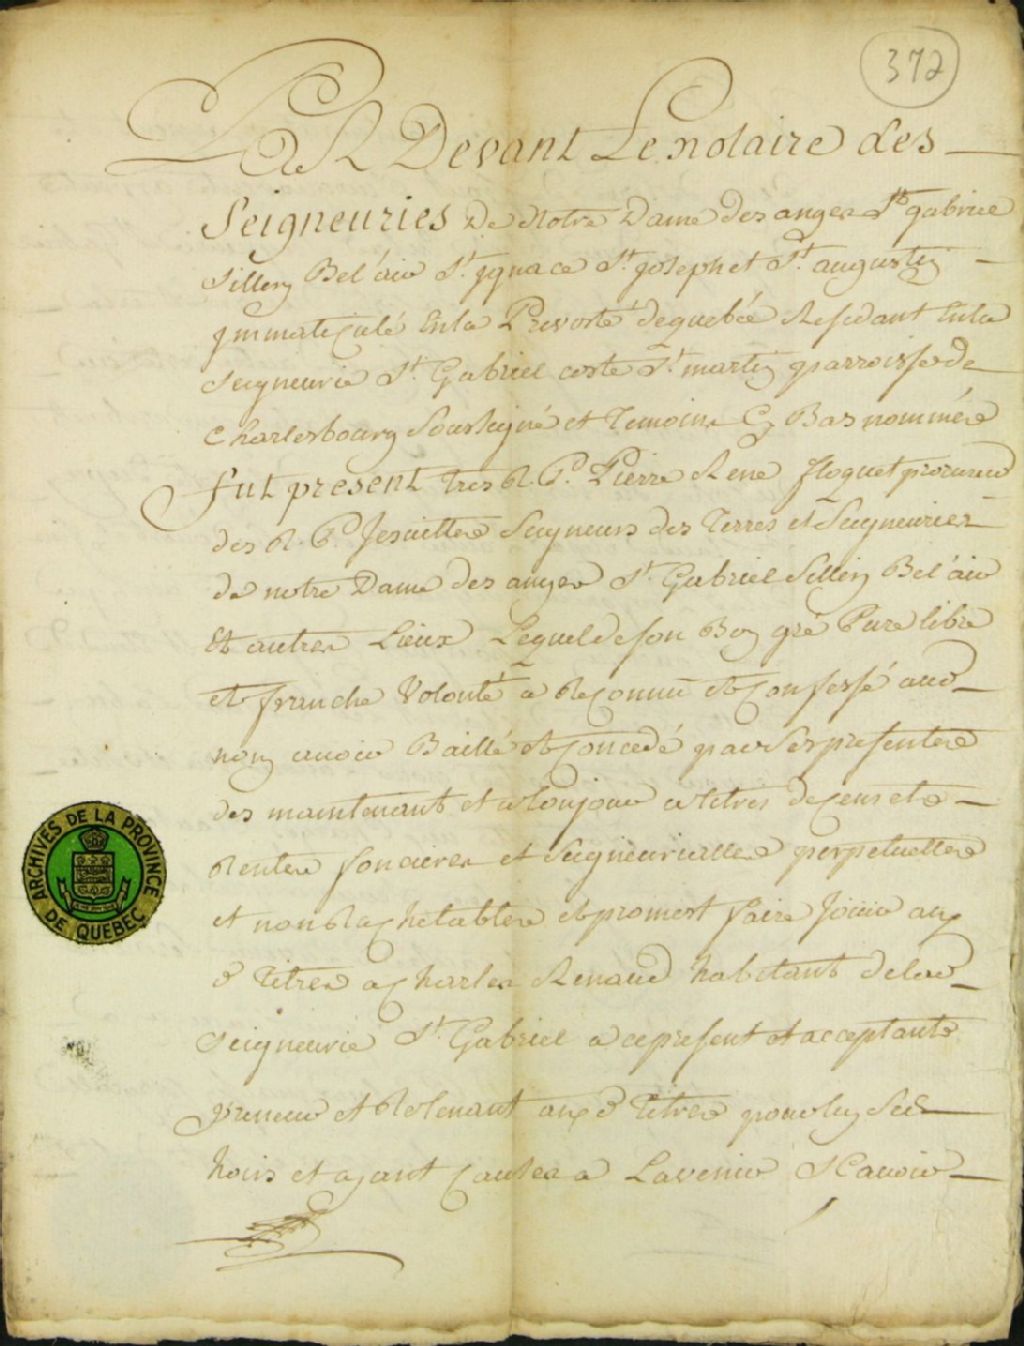 372
PAR Devant Le notaire des
Seigneuries De Notre Dame des anges St gabriel
Sillery Bel'air St. ygnace St. joseph et St. augustin
ymmatiçulé En la Prevosté de quebéc Residant En la
Seigneurie St. Gabriel coste St martin parroisse de
Charlesbourg Soussigné et Temoins Cy Bas nommés
fut present tres R. P. Pierre Rene floquet procureur
des R. P. Jesuittes Seigneurs des Terres et Seigneuries
de notre Dame des anges St Gabriel Sillery Bel'air
Et autres Lieux Lequel de son Bon gré Pure libre
et franche Volonté a Reconnu et Confessé aud
nom avoir Baillé et Concedé par Ses presentes
des maintenant et a Toujour a titres de Cens et
Rentes foncieres et Seigneurialles perpetuelles
et non Rachetables et promest faire Jouir aux
d Titres a Charles Renaud habitant de lad
Seigneurie St. Gabriel a ce present et acceptant
preneur et Retenant aux d Titres pour luy Ses
hoirs et ayant Causes a Lavenir SCavoir
ARCHIVES DE LA PROVINCE DE QUEBEC